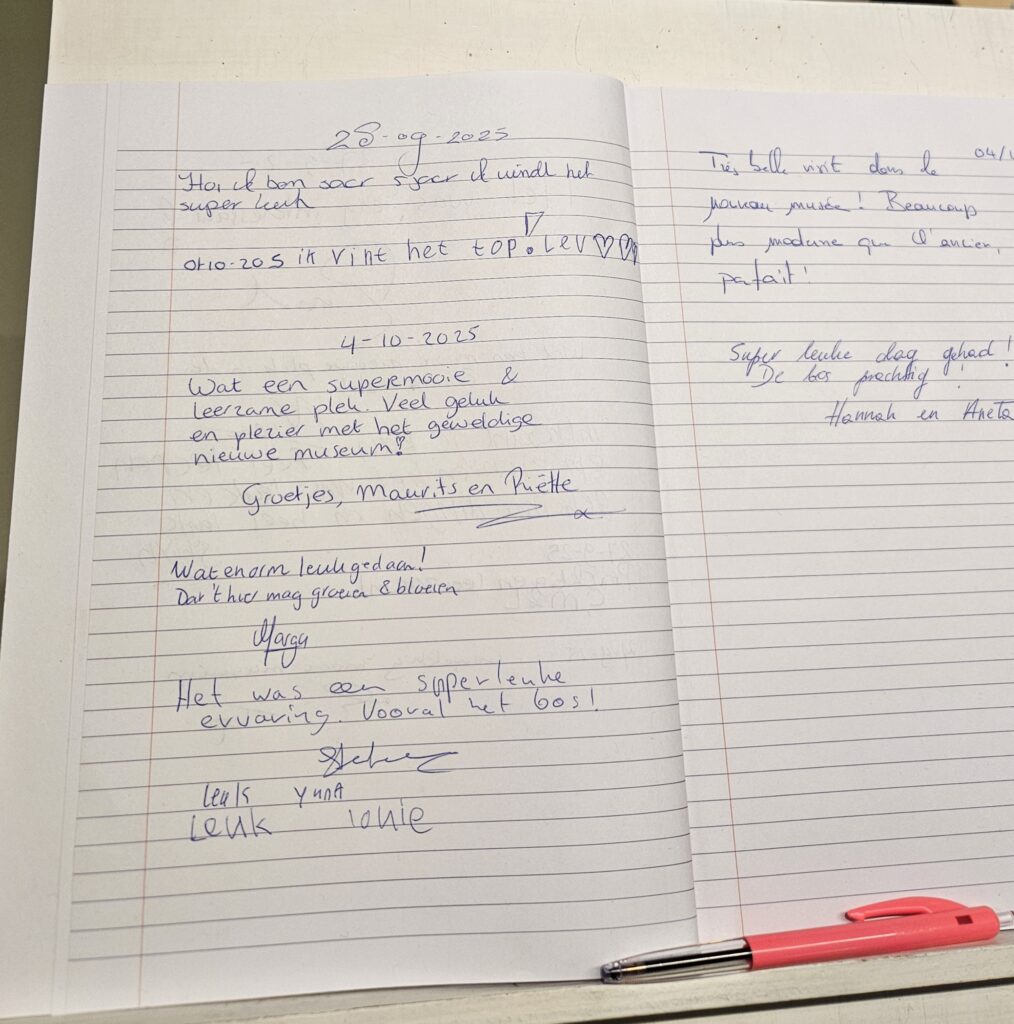 28-09-2025
Hoi ik ben saar 5 jaar ik vindt het
super leuk
ik vint het top! Lev
4-10-2025
Wat een supermooie &
leerzame plek. Veel geluk
en plezier met het geweldige
nieuwe museum!
Groetjes, Maurits en Riëtte
Wat enorm leuk gedaan!
Dat 't hier mag groeien & bloeien
Marga
Het was een superleuke
ervaring. Vooral het bos!
leuk Yuna
Leuk
04/1
Très belle visit dans le
nouveau musée! Beaucoup
plus moderne que l'ancien,
parfait!
Super leuke dag gehad!
De bos prachtig!
Hannah en Aneta